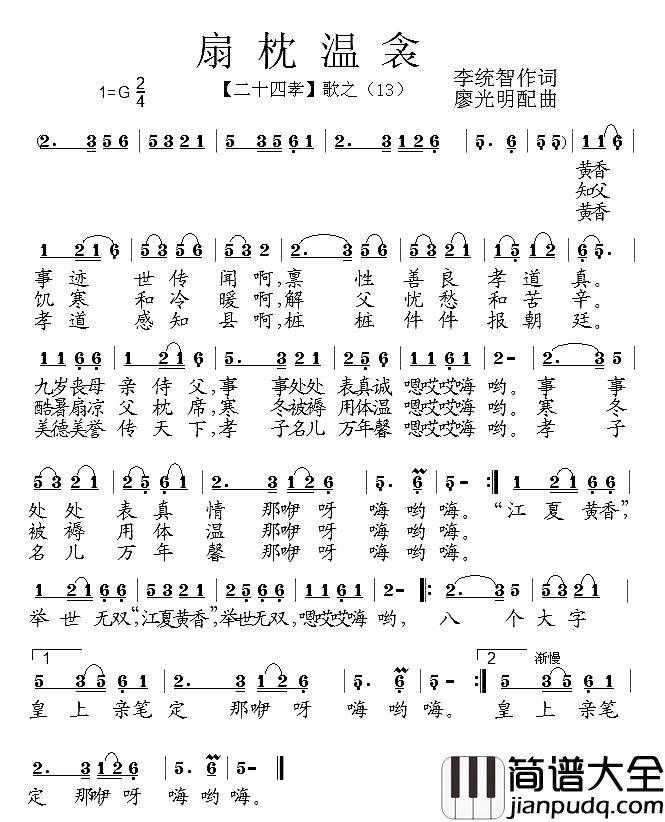 扇枕温衾
1=G 2/4 【二十四孝】歌之（13） 李统智作词
廖光明配曲
(2. 3 5 6 | 5 3 2 1 | 5 3 5 6 | 2. 3 1 2 6 | 5. 6 | 5 5) | 1 1 6 |
黄香
知父
黄香
1 2 1 6 | 5 3 5 6 | 5 3 2 | 2. 3 | 5 3 5 2 1 | 1 5 1 2 | 6 5. |
事迹 世传 闻啊,禀 性 善良孝道 真。
饥寒 和冷 暖啊,解 父 忧愁和苦 辛。
孝道 感知 县啊,桩 桩 件件报朝 廷。
1 1 6 6 | 1 2 1 | 5. 3 | 5 3 2 1 | 2 5 6 | 1 1 6 1 | 2 - | 2. 3 |
九岁丧母 亲侍父,事 事处处 表真诚 嗯哎哎嗨 哟。事 事
酷暑扇凉 父枕席,寒 冬被褥 用体温 嗯哎哎嗨 哟。寒 冬
美德美誉 传天下,孝 子名儿 万年馨 嗯哎哎嗨 哟。孝 子
5 3 2 1 | 2 5 6 1 | 2. 3 | 1 2 1 6 | 5. 6 | 5 - :| 2 1 6 6 |
处处 表真 情 那咿呀 嗨哟 嗨。“江夏黄香”,
被褥 用体 温 那咿呀 嗨哟 嗨。
名儿 万年 馨 那咿呀 嗨哟 嗨。
1 2 1 6 6 | 5 3 2 1 | 2 5 6 6 | 1 1 6 1 | 2 - |: 2. 3 5 | 5 3 2 1 |
举世无双”,“江夏黄香”,举世无双,嗯哎哎嗨 哟, 八 个大字
1 2 渐慢
5 3 5 6 1 | 2. 3 | 1 2 1 6 | 5. 6 | 5 - :| 5 3 5 6 1 |
皇上亲笔 定 那咿呀 嗨哟 嗨。皇上亲笔
2. 3 1 2 1 6 | 5. 6 | 5 - ||
定 那咿呀 嗨哟嗨。
简谱大全
jianpudq.com